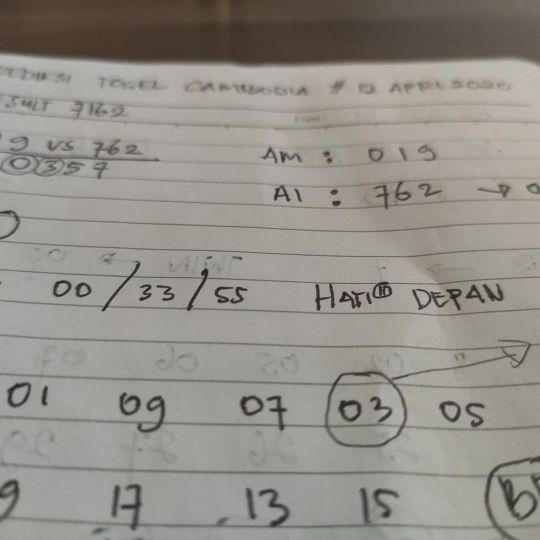 TOGEL CAMBODIA # 12 APRI 2020
SULT 7162
9 VS 762
0357
AM : 019
AI : 762 →
00 / 33 / 55 HATI² DEPAN
01 09 07 03 05
9 17 13 15